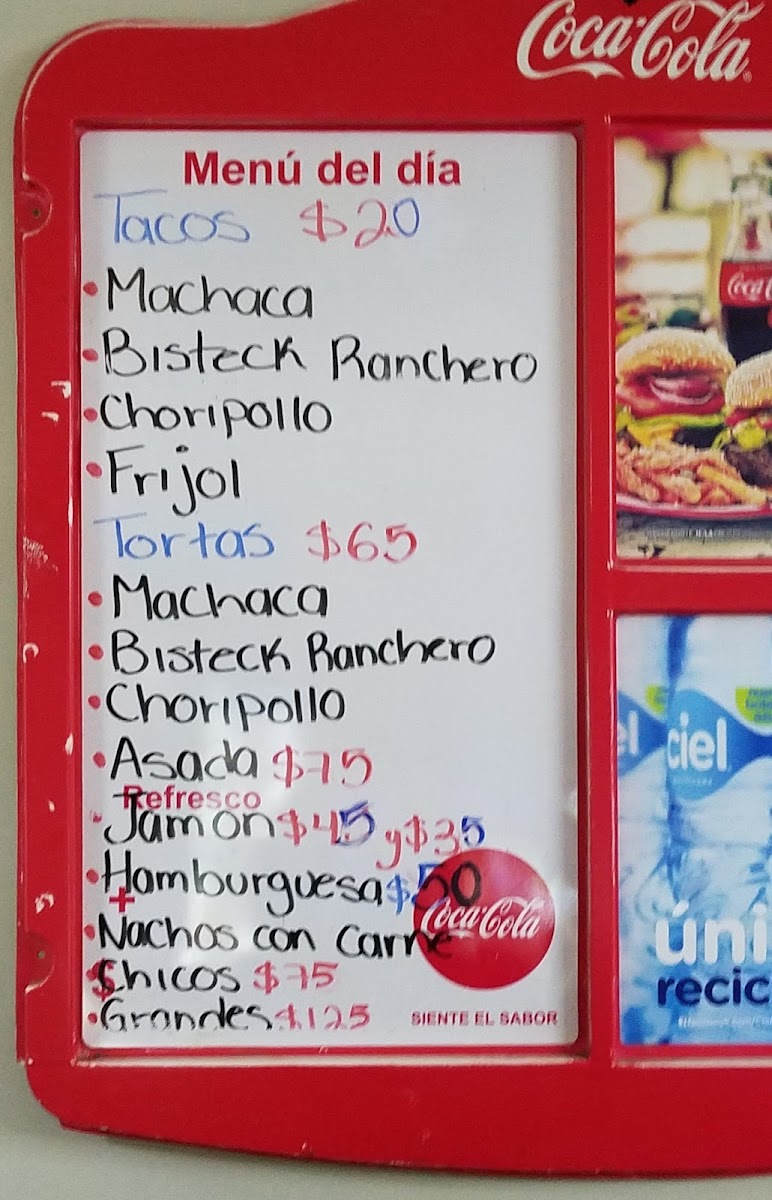 Coca-Cola
Menú del día
Tacos $20
• Machaca
• Bisteck Ranchero
• Choripollo
• Frijol
Tortas $65
• Machaca
• Bisteck Ranchero
• Choripollo
• Asada $75
Refresco
• Jamon $45 y $35
• Hamburguesa $50
+
• Nachos con Carne
Chicos $75
• Grandes $125
Coca-Cola
SIENTE EL SABOR
Coca
el
ciel
úni
recic